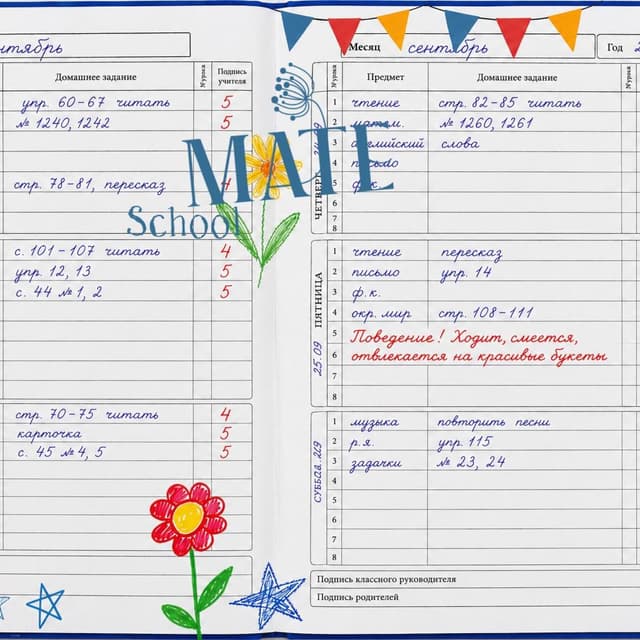 нтябрь
Домашнее задание
№ урока
Подпись учителя
упр. 60-67 читать 5
№ 1240, 1242 5
стр. 78-81, пересказ 4
с. 101-107 читать 4
упр. 12, 13 5
с. 44 №1, 2 5
стр. 70-75 читать 4
карточка 5
с. 45 №4, 5 5
MATE
School
Месяц сентябрь Год 2
№ урока
Предмет
Домашнее задание
ЧЕТВЕРГ
1 чтение стр. 82-85 читать
2 матем. № 1260, 1261
3 английский слова
4 письмо
5 ф.к.
6
7
8
ПЯТНИЦА
25.09
1 чтение пересказ
2 письмо упр. 14
3 ф.к.
4 окр. мир стр. 108-111
5 Поведение! Ходит, смеется,
6 отвлекается на красивые букеты
7
8
1 музыка повторить песни
2 р.я. упр. 115
3 задачки № 23, 24
4
5
6
7
8
Подпись классного руководителя
Подпись родителей